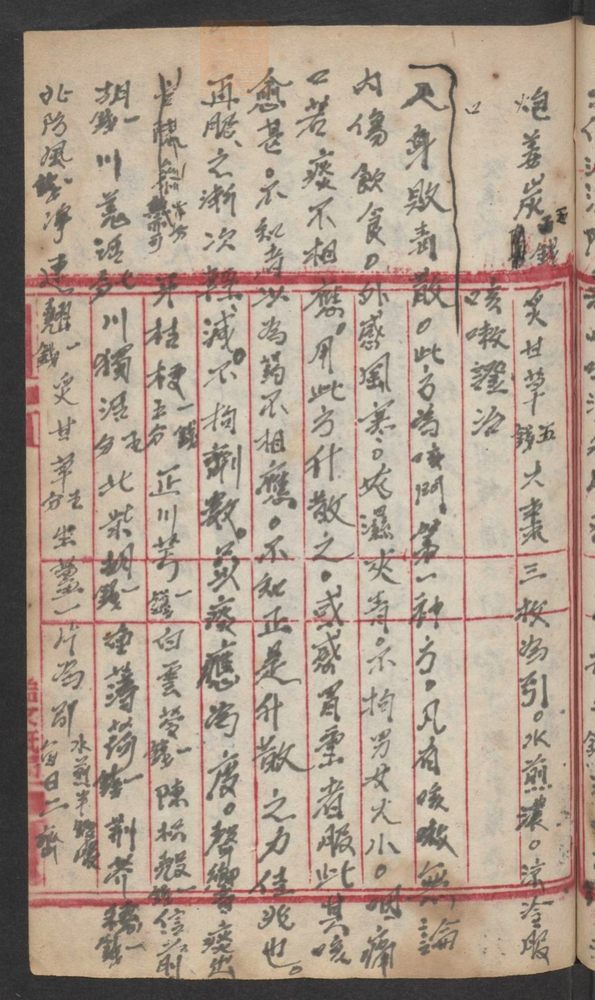 炮姜炭 五錢 炙甘草 五錢 大棗三枚為引。水煎濃。涼冷服
咳嗽證治
人身敗毒散。此方為咳門第一神方。凡有咳嗽無論
內傷飲食。外感風寒。夾濕夾毒。不拘男女大小。咽痛
口若痰不相應。用此方升散之。或感冒重者服此其咳
愈甚。不知者以為藥不相應。不知正是升散之力佳兆也。
再服之漸次輕減。不拘劑數。以痰應為度。聲響痰出
苦桔梗 一錢五分 正川芎 一錢 白雲苓 一錢 陳枳殼 一錢 信前
胡 一錢 川羌活 七分 川獨活 七分 北柴胡 一錢 蘇薄荷 一錢 荊芥穗 一錢
北防風 一錢 淨連翹 一錢 炙甘草 五分 生薑一片為引 水煎半飢服 每日二劑